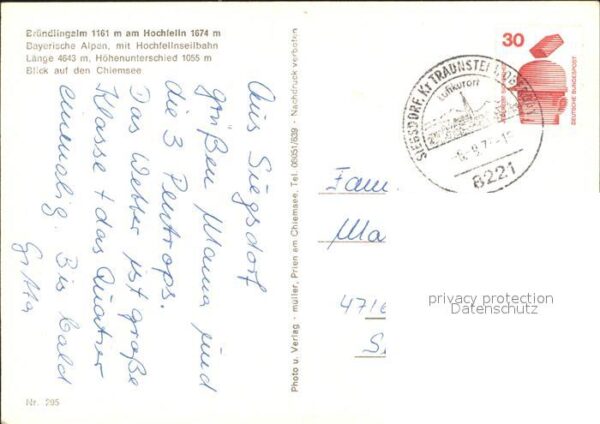 Bründlingalm 1161 m am Hochfelln 1674 m
Bayerische Alpen, mit Hochfellnseilbahn
Länge 4643 m, Höhenunterschied 1055 m
Blick auf den Chiemsee
Aus Siegsdorf
grüßen Mama und
die 3 Pentrops.
Das Wetter ist große
Klasse + das Quatier
einmalig. Bis bald
Gitta
Nr. 295
Photo u. Verlag - müller, Prien am Chiemsee, Tel. 08051/839 - Nachdruck verboten
SIEGSDORF, Kr TRAUNSTEIN, OBERBAY
Luftkurort
8221
30
DEUTSCHE BUNDESPOST
Fam
Ma
4716
S
privacy protection
Datenschutz